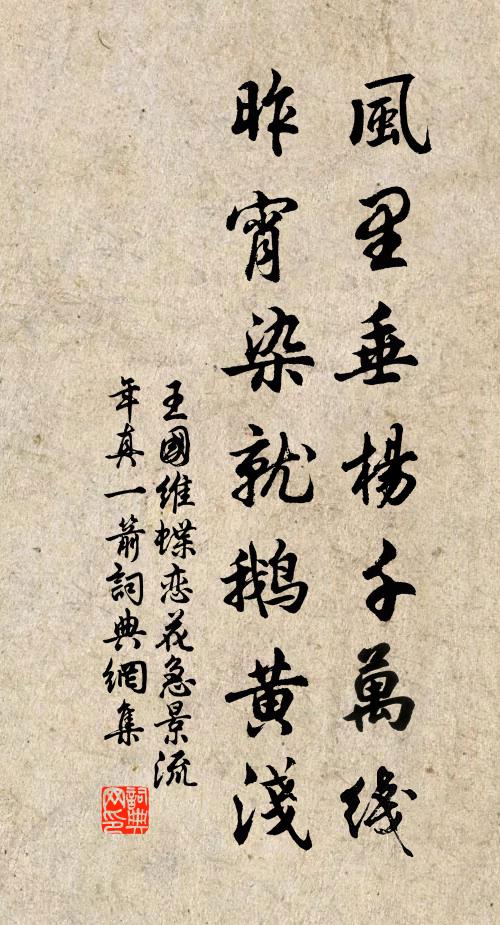 風里垂楊千萬线
昨宵染就鹅黄淺
王國维蝶恋花急景流
年真一箭詞典網集
詞典网印